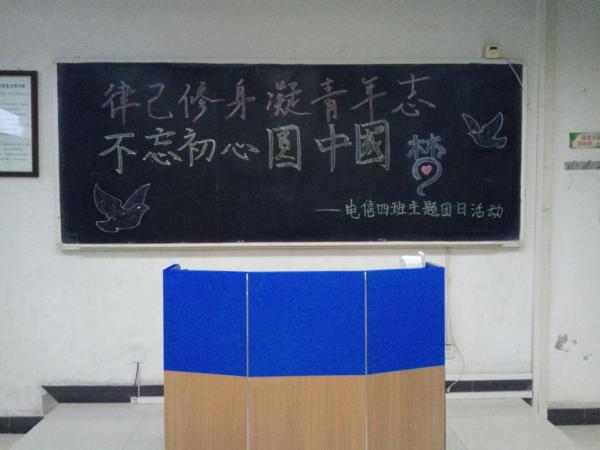 律己修身凝青年志
不忘初心圆中國梦
——电信四班主题团日活动